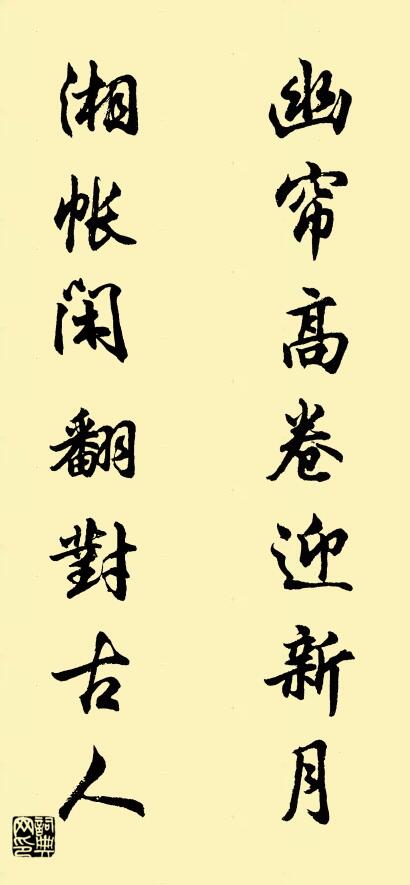 幽帘高卷迎新月
湘帙闲翻對古人
詞典网印